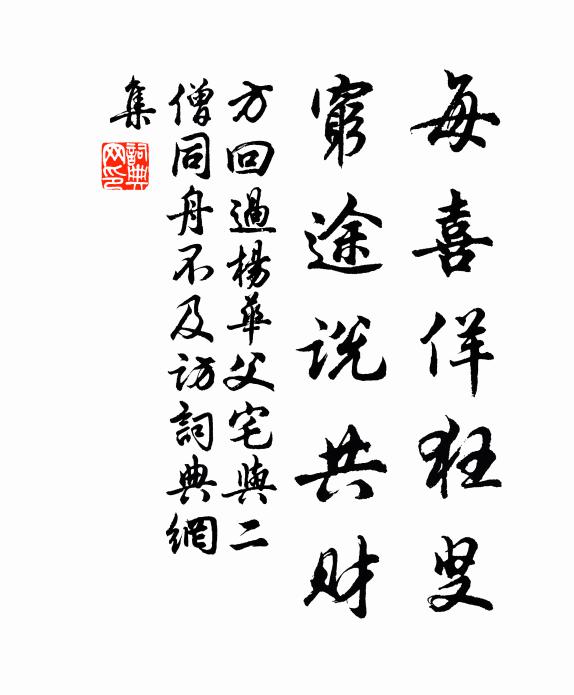 每喜佯狂叟
窮途説共財
方回過楊華父宅與二
僧同舟不及訪詞典網
集
詞典
网印